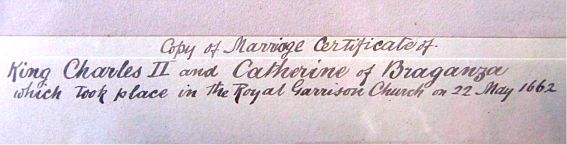 Copy of Marriage Certificate of.
King Charles II and Catherine of Braganza
which took place in the Royal Garrison Church on 22 May 1662